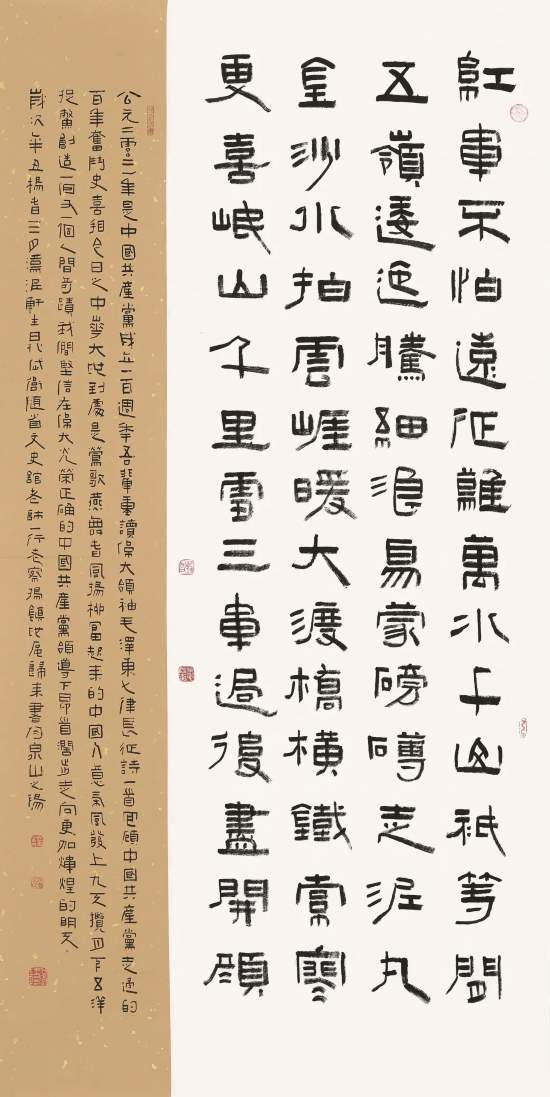 紅軍不怕遠征難萬水千山祇等閑
五嶺逶迤騰細浪烏蒙磅礴走泥丸
金沙水拍雲崖暖大渡橋橫鐵索寒
更喜岷山千里雪三軍過後盡開顔
公元二零二一年是中國共產黨成立一百週年吾輩重讀偉大領袖毛澤東七律長征詩一首回顧中國共產黨走過的
百年奮鬥史喜相今日之中華大地到處是鶯歌燕舞春風楊柳富起來的中國人意氣風發上九天攬月下五洋
捉鱉創造一個又一個人間奇蹟我們堅信在偉大光榮正确的中國共產黨領導下昂首闊步走向更加煇煌的明天
歲次辛丑陽春三月軒主省文史館老師一行考察歸來書於泉山之陽